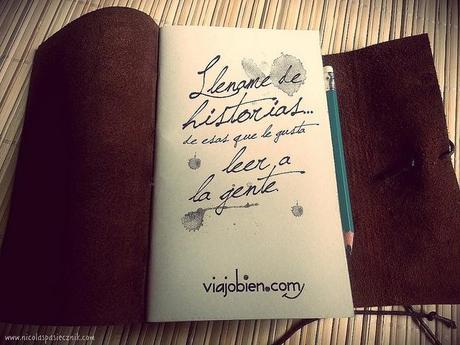 Llename de
historias...
de esas que le gusta
leer a
la gente.
viajobien.com
www.nicolaspasiecznik.com